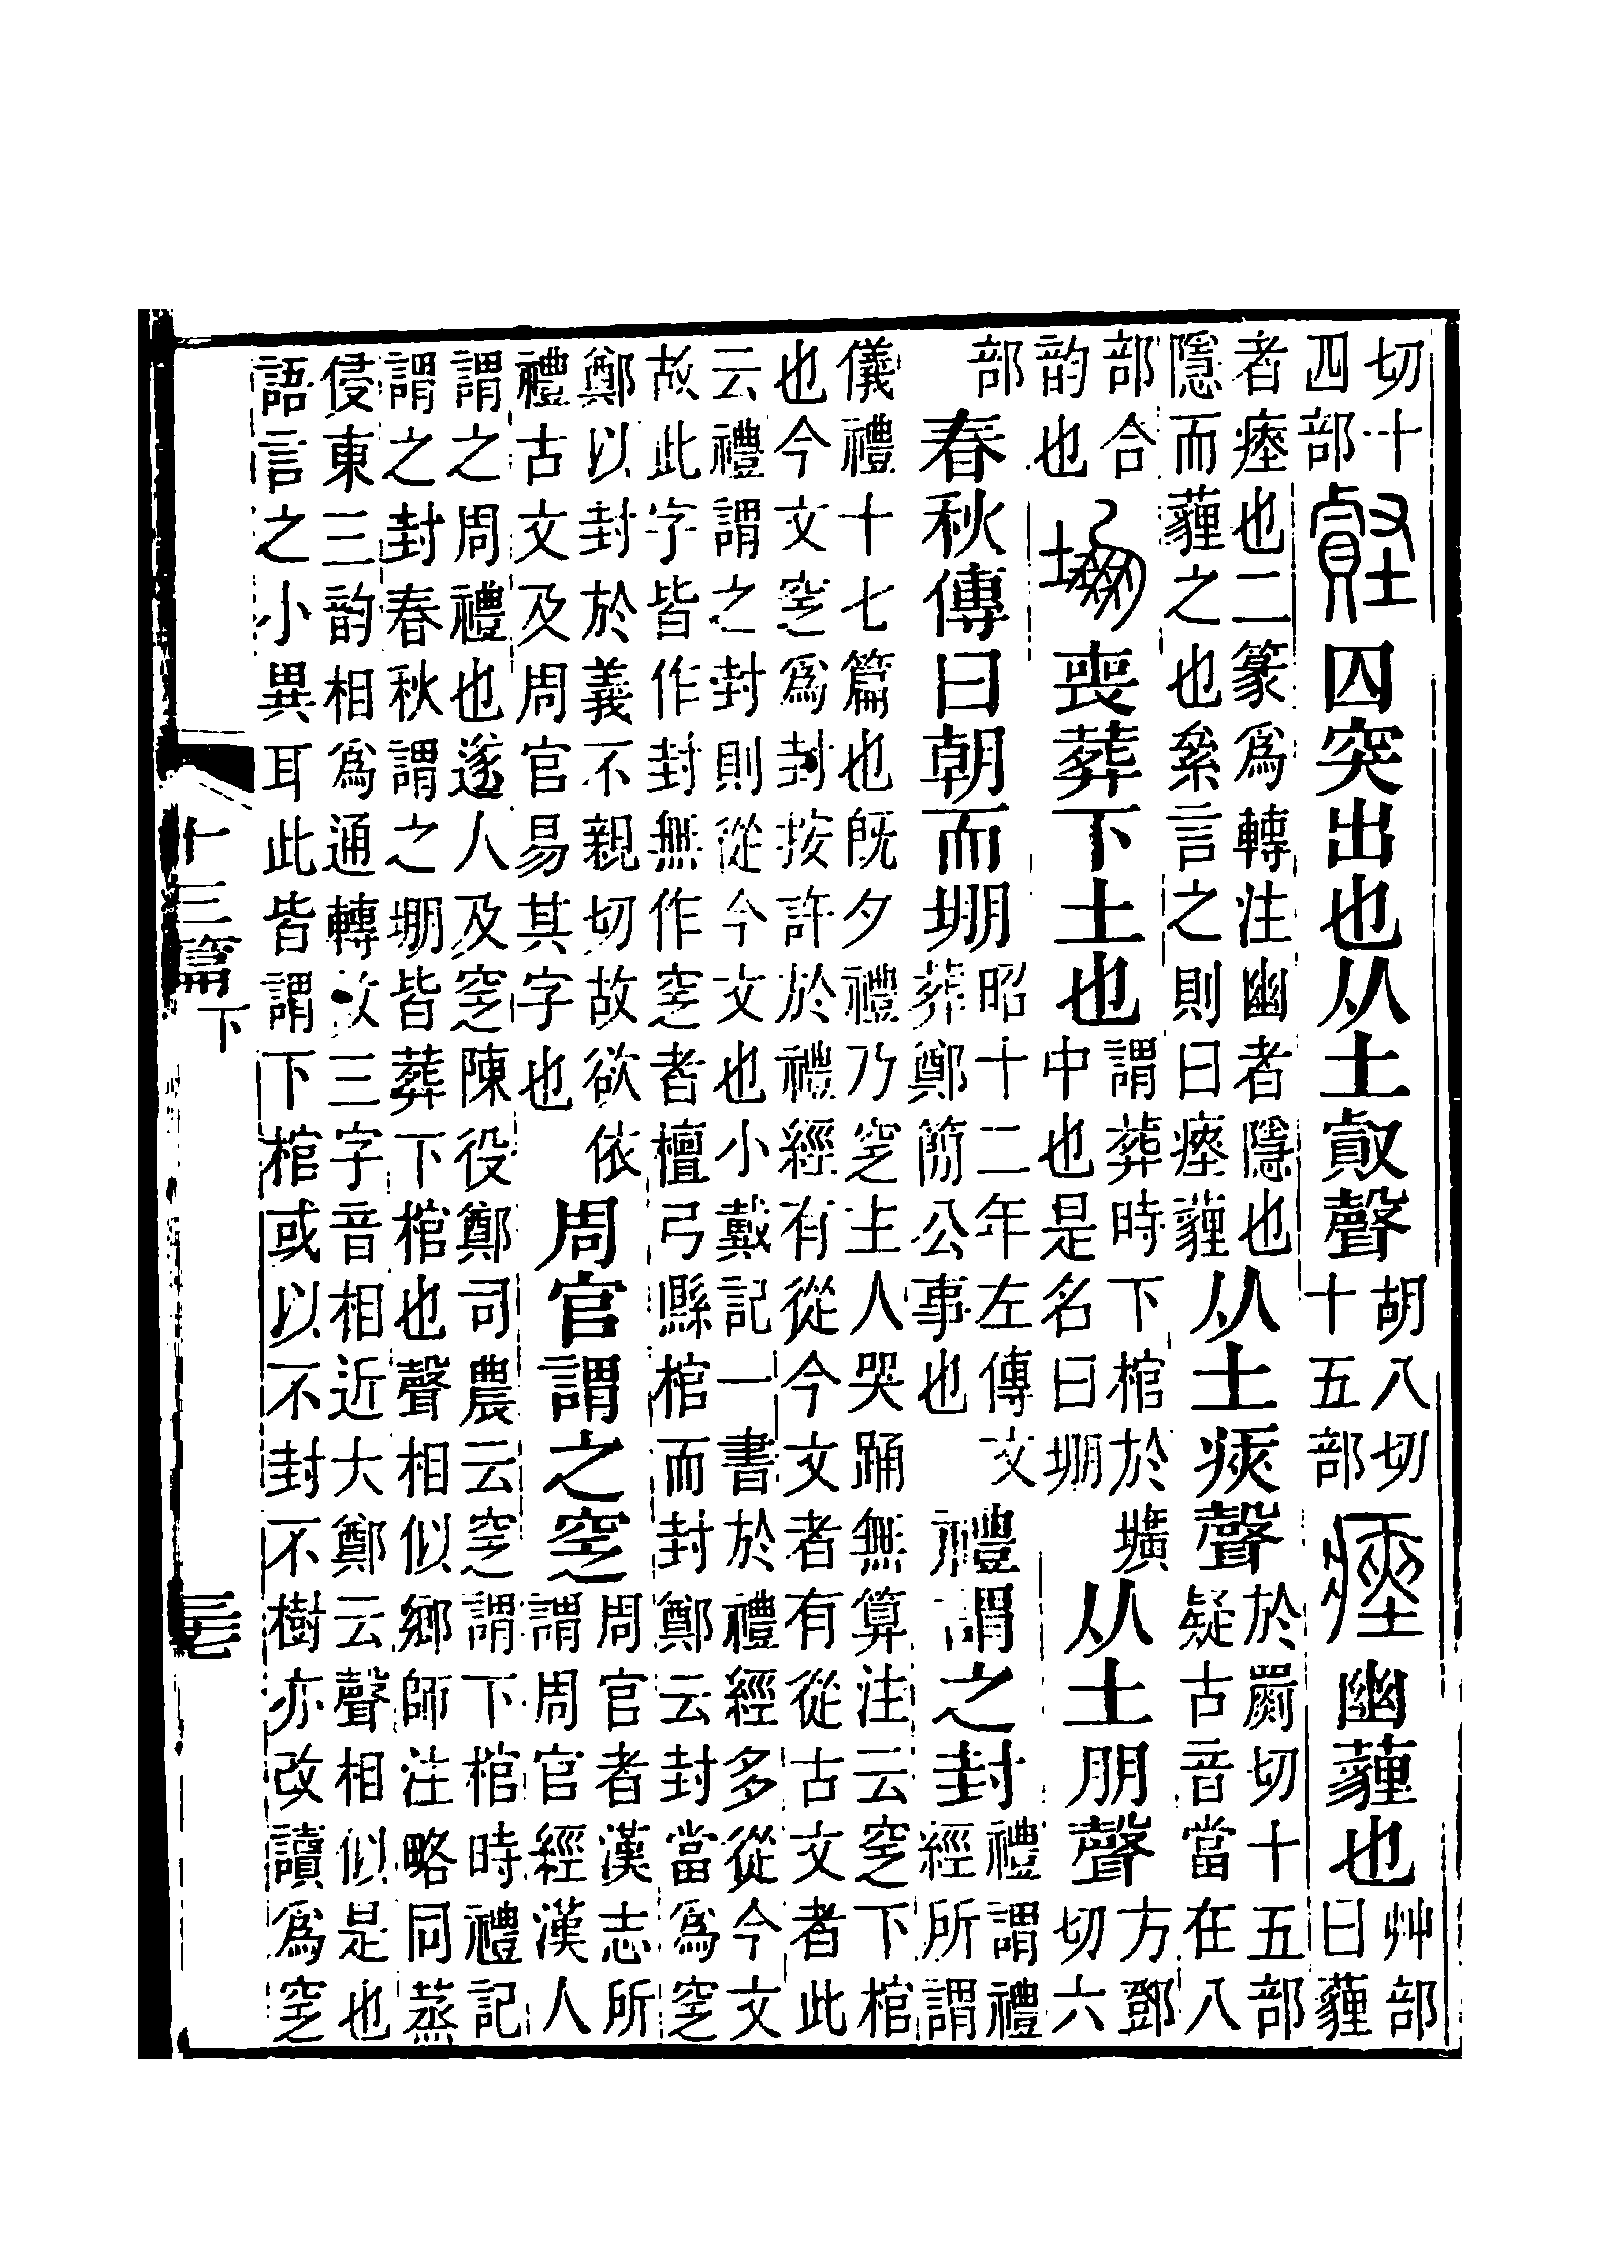 切十四部 囚突出也从土㕡聲胡八切十五部瘞幽薶也艸部曰薶
者瘞也二篆爲轉注幽者隱也隱而薶之也絫言之則曰瘞薶从土㾜聲於罽切十五部疑古音當在八
部合韵也堋喪葬下土也謂葬時下棺於壙中也是名曰堋从土朋聲方鄧切六
部春秋傳曰朝而堋昭十二年左傳文葬鄭𥳑公事也禮謂之封禮謂禮經所謂
儀禮十七篇也既夕禮乃窆主人哭踊無算注云窆下棺
也今文窆爲封按許於禮經有從今文者有從古文者此
云禮謂之封則從今文也小戴記一書於禮經多從今文
故此字皆作封無作窆者檀弓縣棺而封鄭云封當爲窆
鄭以封於義不親切故欲依禮古文及周官易其字也周官謂之窆周官者漢志所謂周官經漢人
謂之周禮也遂人及窆陳役鄭司農云窆謂下棺時禮記
謂之封春秋謂之堋皆葬下棺也聲相似鄉師注略同蒸
侵東三韵相爲通轉故三字音相近大鄭云聲相似是也
語言之小異耳此皆謂下棺或以不封不樹亦改讀爲窆
十三篇下 三七